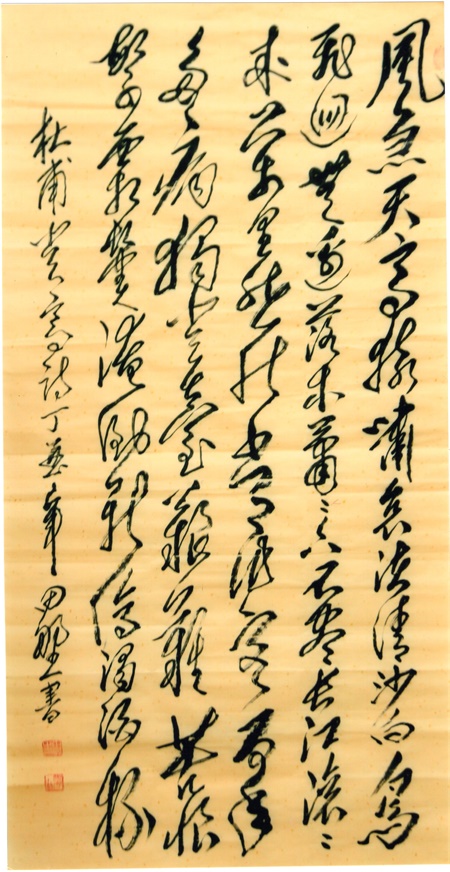 風急天高猿嘯哀渚清沙白鳥
飛迴無邊落木蕭〻下不盡長江滾〻
來萬里悲秋常作客百年
多病獨登臺艱難苦恨
繁霜鬢潦倒新停濁酒杯
杜甫登高詩丁亥年田野書